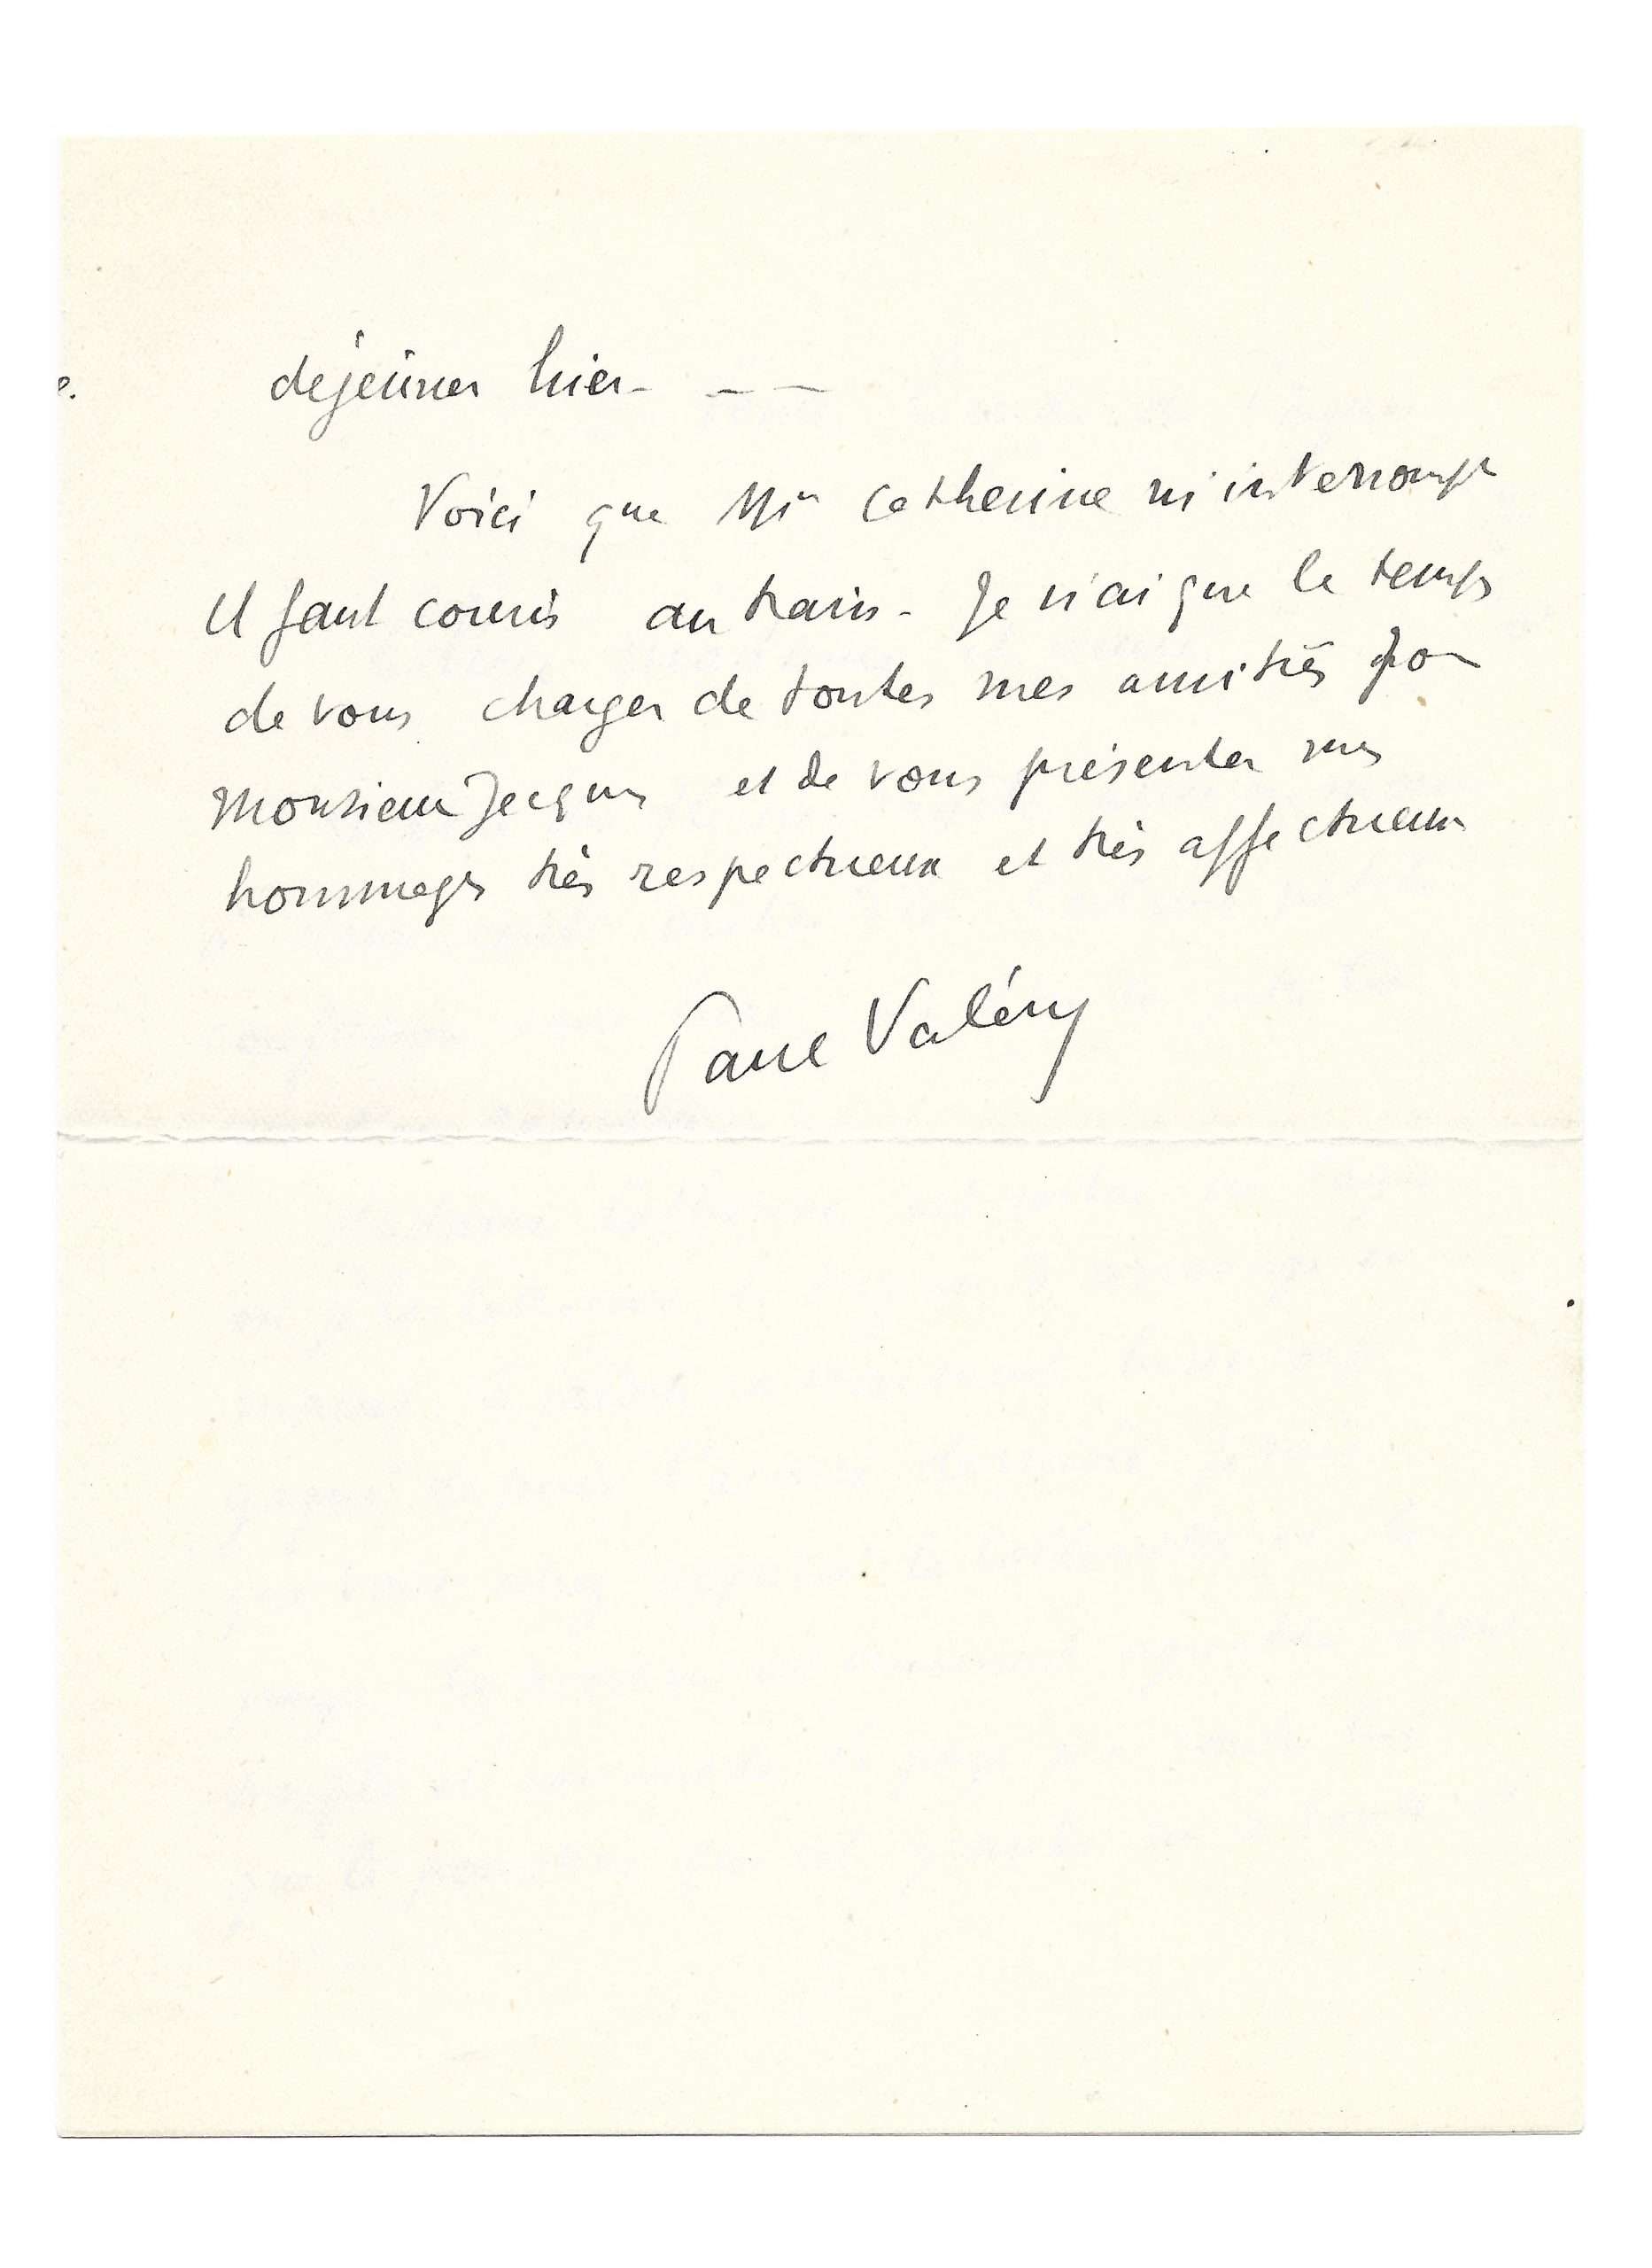 déjeuner hier - - -
Voici que Catherine m'interrompt
Il faut courir au train - Je n'ai que le temps
de vous charger de toutes mes amitiés pour
Monsieur Jacques et de vous présenter mes
hommages très respectueux et très affectueux
Paul Valéry